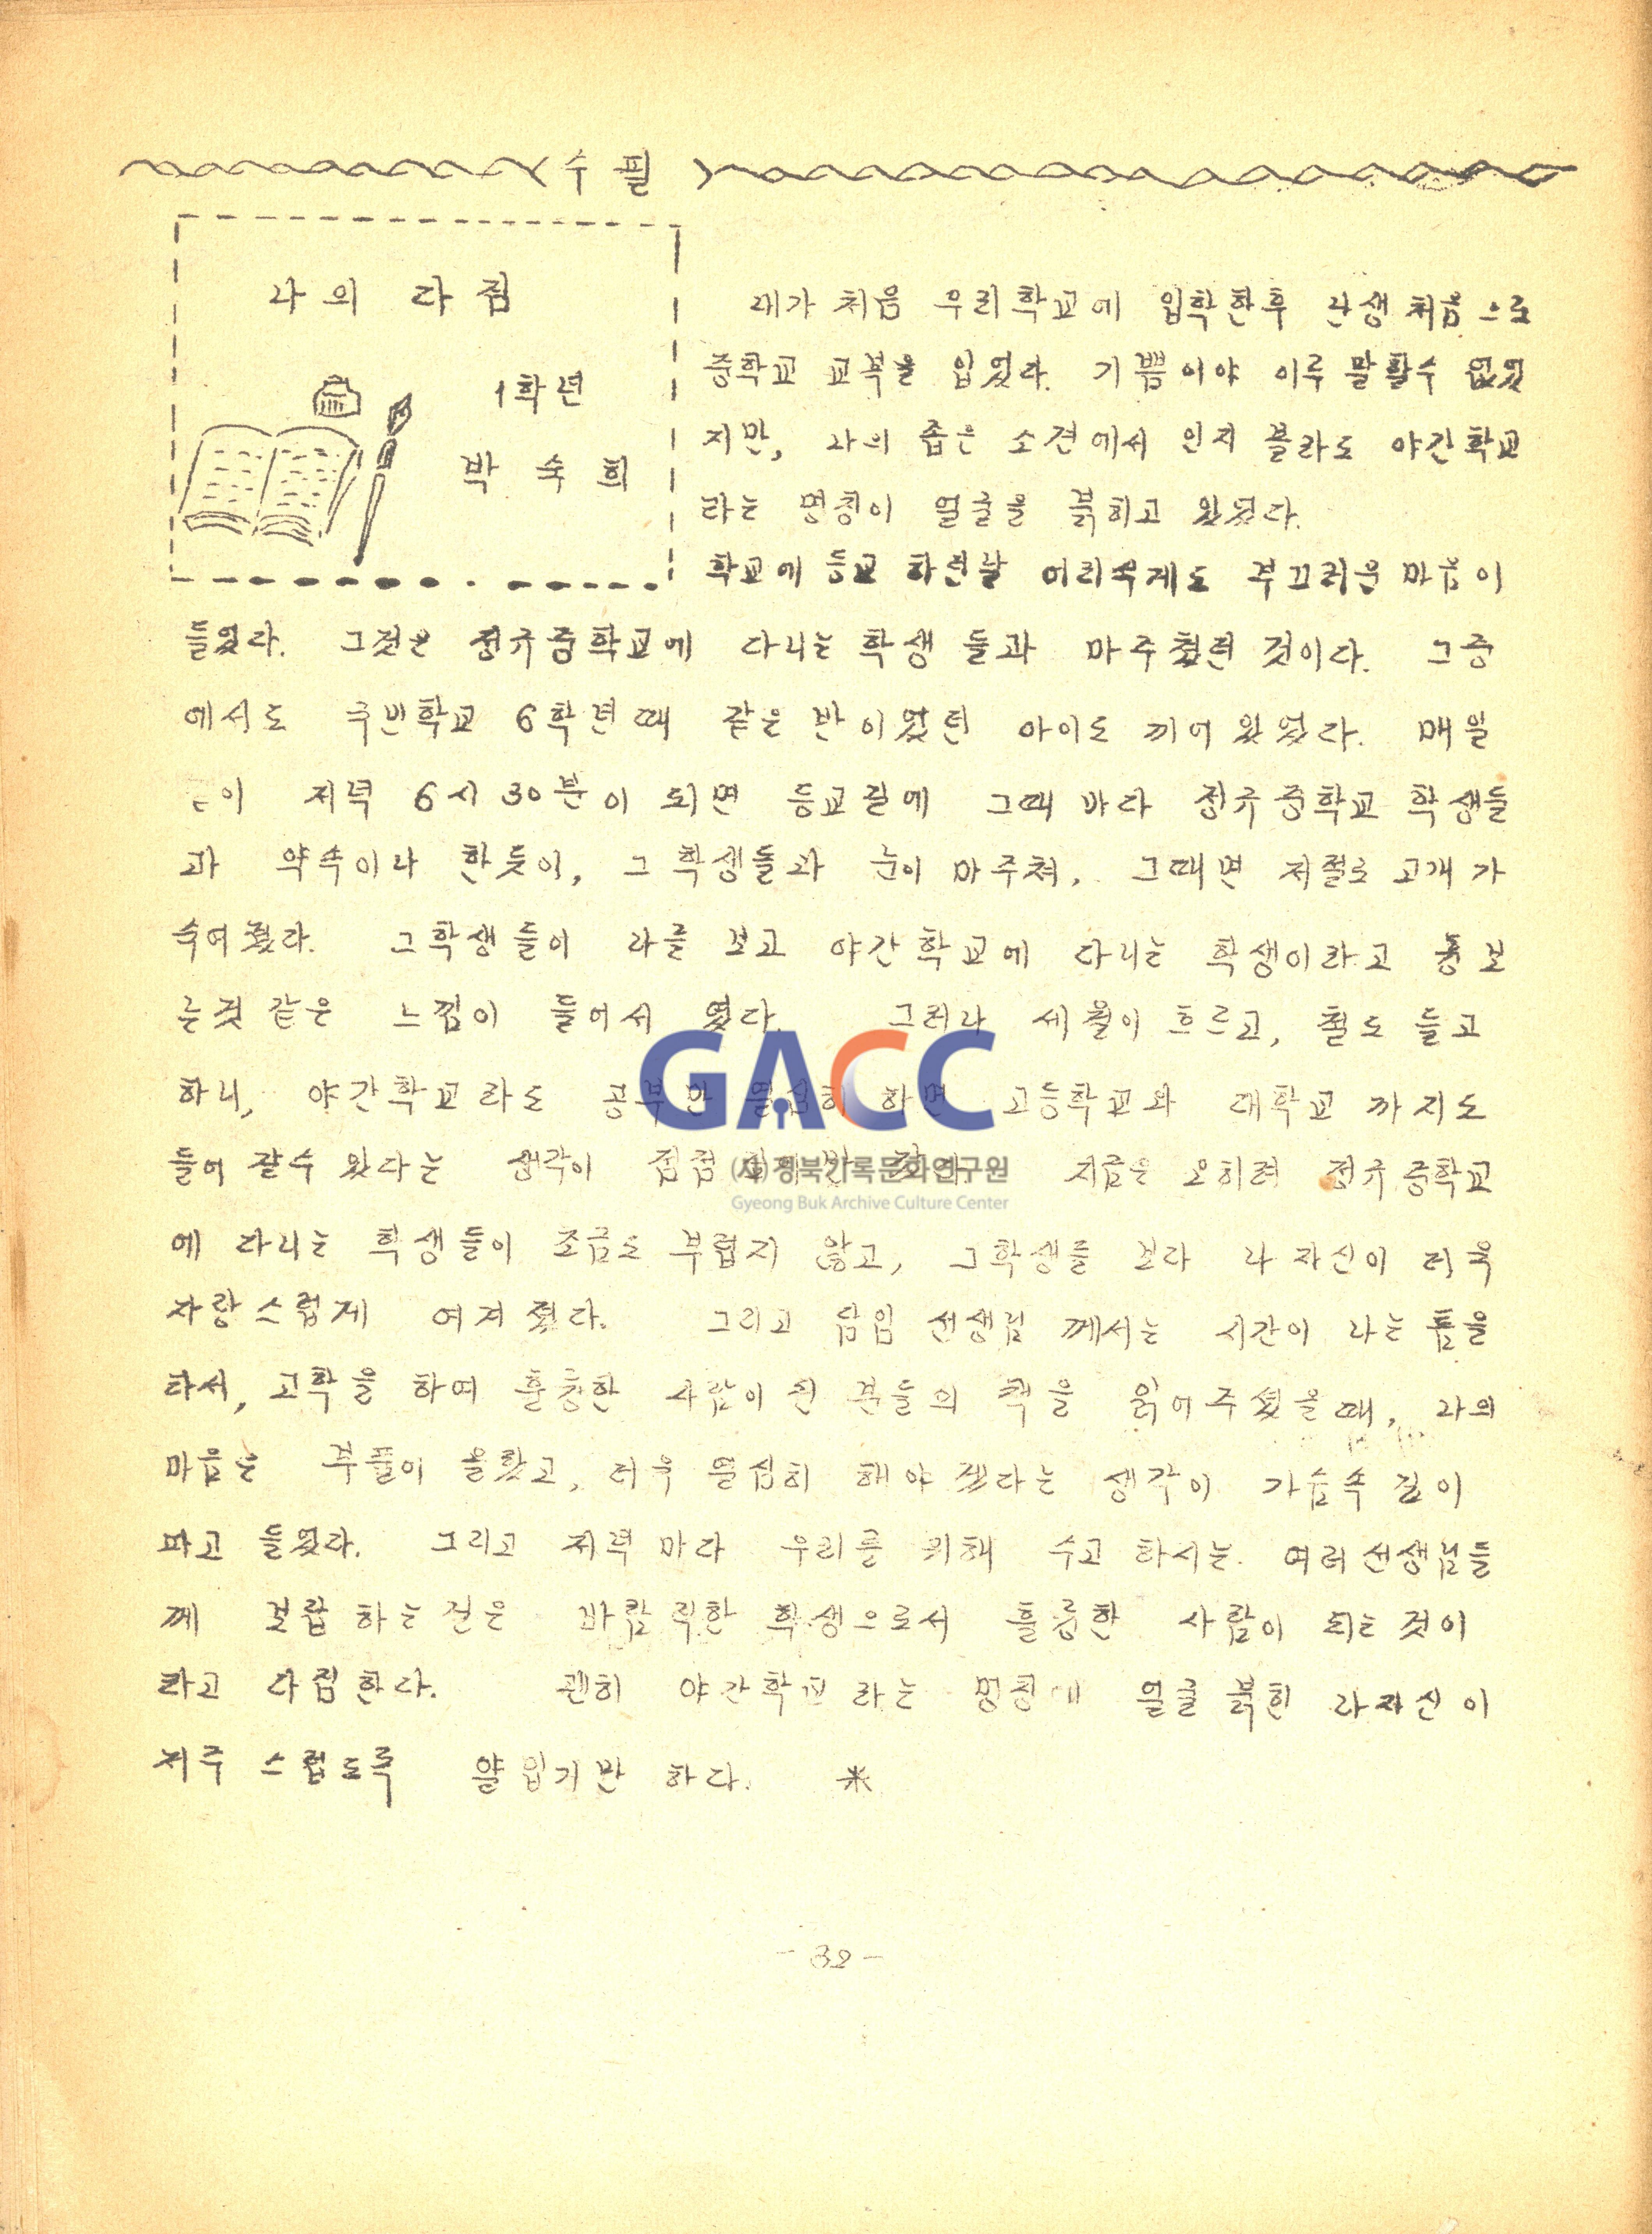 수필
나의 다짐
1학년
박 숙 희
내가 처음 우리학교에 입학한후 난생 처음으로
중학교 교복을 입었다. 기쁨이야 이루 말할수 없었
지만, 나의 좁은 소견에서 인지 몰라도 야간학교
라는 명칭이 얼굴을 붉히고 있었다.
학교에 등교 하던날 어리석게도 부끄러운 마음이
들었다. 그것은 정규중학교에 다니는 학생 들과 마주쳤던 것이다. 그중
에서도 국민학교 6학년때 같은 반이었던 아이도 끼어 있었다. 매일
이 저녁 6시 30분이 되면 등교길에 그때 마다 정규중학교 학생들
과 약속이나 한듯이, 그 학생들과 눈이 마주쳐, 그때면 저절로 고개가
숙여 졌다. 그학생들이 나를 보고 야간학교에 다니는 학생이라고 흉보
는것 같은 느낌이 들어서 였다. 그러나 세월이 흐르고, 철도 들고
하니, 야간학교라도 공부만 열심히 하면 고등학교와 대학교 까지도
들어 갈수 있다는 생각이 점점 지금은 오히려 정규중학교
에 다니는 학생들이 조금도 부럽지 않고, 그학생들 보다 나 자신이 더욱
자랑스럽게 여겨 졌다. 그리고 담임 선생님 께서는 시간이 나는 틈을
타서, 고학을 하여 훌륭한 사람이 된 분들의 책을 읽어주셨을때, 나의
마음은 부풀어 올랐고, 더욱 열심히 해야 겠다는 생각이 가슴속 깊이
파고 들었다. 그리고 저녁마다 우리를 위해 수고 하시는 여러선생님들
께 보람 하는건은 바람직한 학생으로서 훌륭한 사람이 되는 것이
라고 다짐한다. 괜히 야간학교라는 명칭에 얼굴 붉힌 나자신이
저주 스럽도록 얄밉기만 하다. ※
- 32 -
GACC
(사)경북기록문화연구원
Gyeong Buk Archive Culture Center